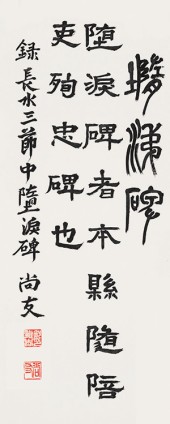 墮淚碑
堕淚碑者本縣隨陪
吏殉忠碑也
錄長水三節中墮淚碑 尚友